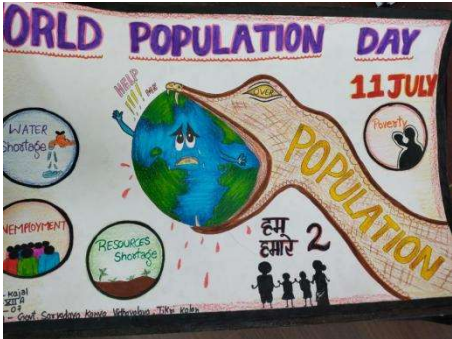 ORLD POPULATION DAY
11 JULY
HELP
!!!! ME
OVER
POPULATION
WATER
Shortage
Poverty
NEMPLOYMENT
RESOURCES
Shortage
हम
हमारे 2
- Kajal
- Govt. Sarvodaya Kanya Vidhyalaya, Tikri Kalan